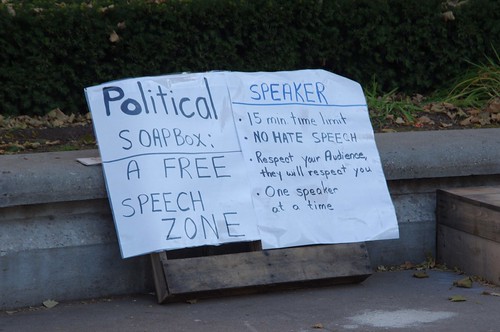 Political
SOAPBOX:
A FREE
SPEECH
ZONE
SPEAKER
· 15 min time limit
· NO HATE SPEECH
· Respect your Audience,
they will respect you
· One speaker
at a time